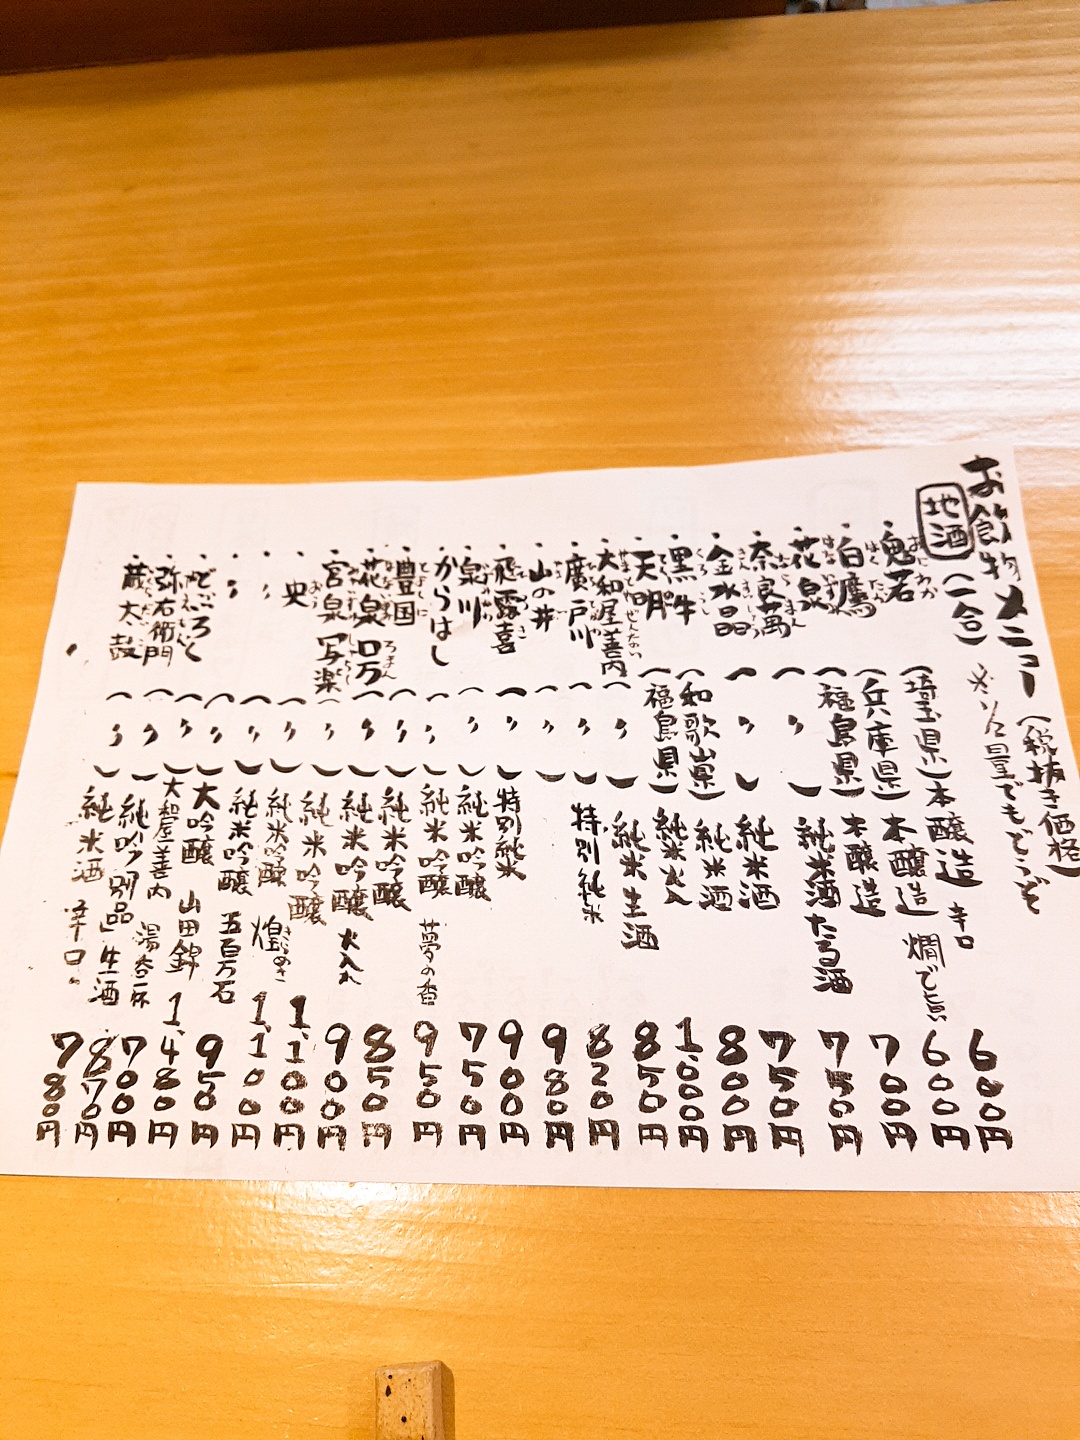 お飲物メニュー(税抜き価格)
地酒(一合) 量でもどうぞ
・鬼若(埼玉県)本醸造 辛口 600円
・白鷹(兵庫県)本醸造 燗で旨 600円
・花泉(福島県)本醸造 700円
・奈良萬(〃)純米酒たる酒 750円
・金水晶(〃)純米酒 750円
・黒牛(和歌山県)純米酒 800円
・天明(福島県)純米火入 1,000円
・大和屋善内(〃)純米生酒 850円
・廣戸川(〃)特別純米 820円
・山の井(〃) 980円
・飛露喜(〃)特別純米 900円
・泉川(〃)純米吟醸 750円
・からはし(〃)純米吟醸 夢の香 950円
・豊国(〃)純米吟醸 850円
・花泉 ロ万(〃)純米吟醸 火入れ 900円
・宮泉 写楽(〃)純米吟醸 1,100円
・央(〃)純米吟醸 煌 1,100円
・〃(〃)純米吟醸 五百万石 950円
・〃(〃)大吟醸 山田錦 1,480円
・どぶろく(〃)大和屋善内 湯呑一杯 700円
・弥右衛門(〃)純吟「別品」生酒 870円
・蔵太鼓(〃)純米酒 辛口 780円